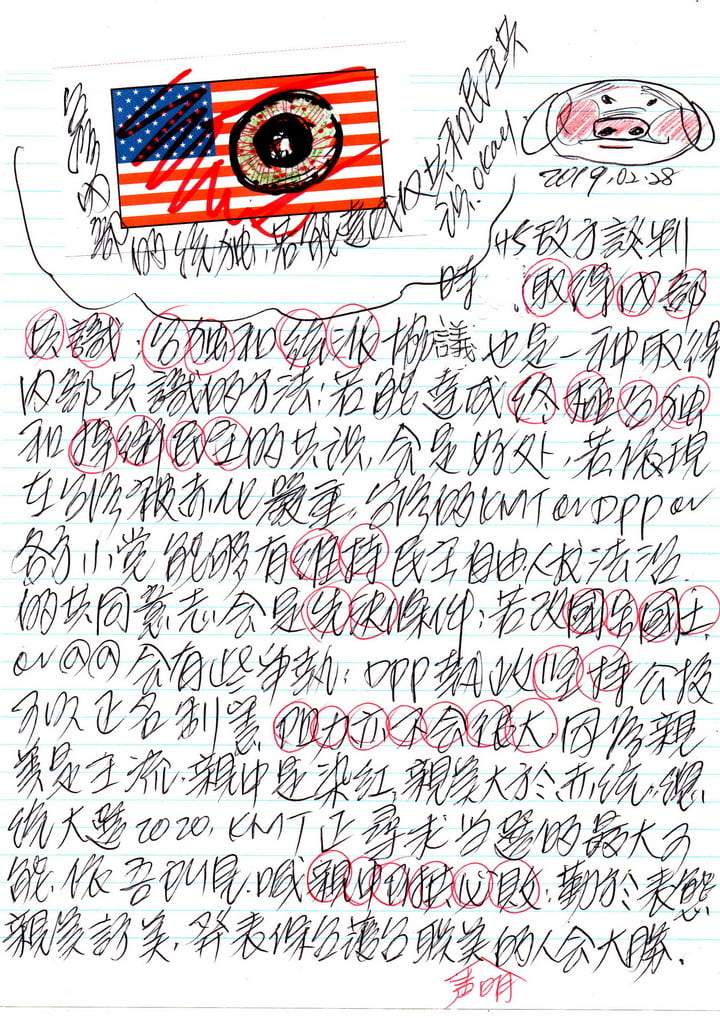 2019.02.28
台灣的統獨,若能達成以共和民主共識.okay!
與敵方談判
時,取得內部
共識:台獨和統派協議也是一种取得
內部共識的方法;若能達成終極台獨
和捍衛民主的共识,会是好处,若依現
在台灣被赤化嚴重,台灣的KMT or DPP or
各方小党能夠有維持民主自由人权法治
的共同意志会是先決條件;若改國号國土
or@@会有些争執;DPP執政坚持公投
可以正名制憲,阻力亦不会很大,因台灣親
美是主流.親中是染红,親美大於赤統.總
統大選2020,KMT正尋求当選的最大可
能,依吾所見,喊親中舔共必敗;勤於表態
親美訪美,發表保台護台親美的人会大勝.
声明